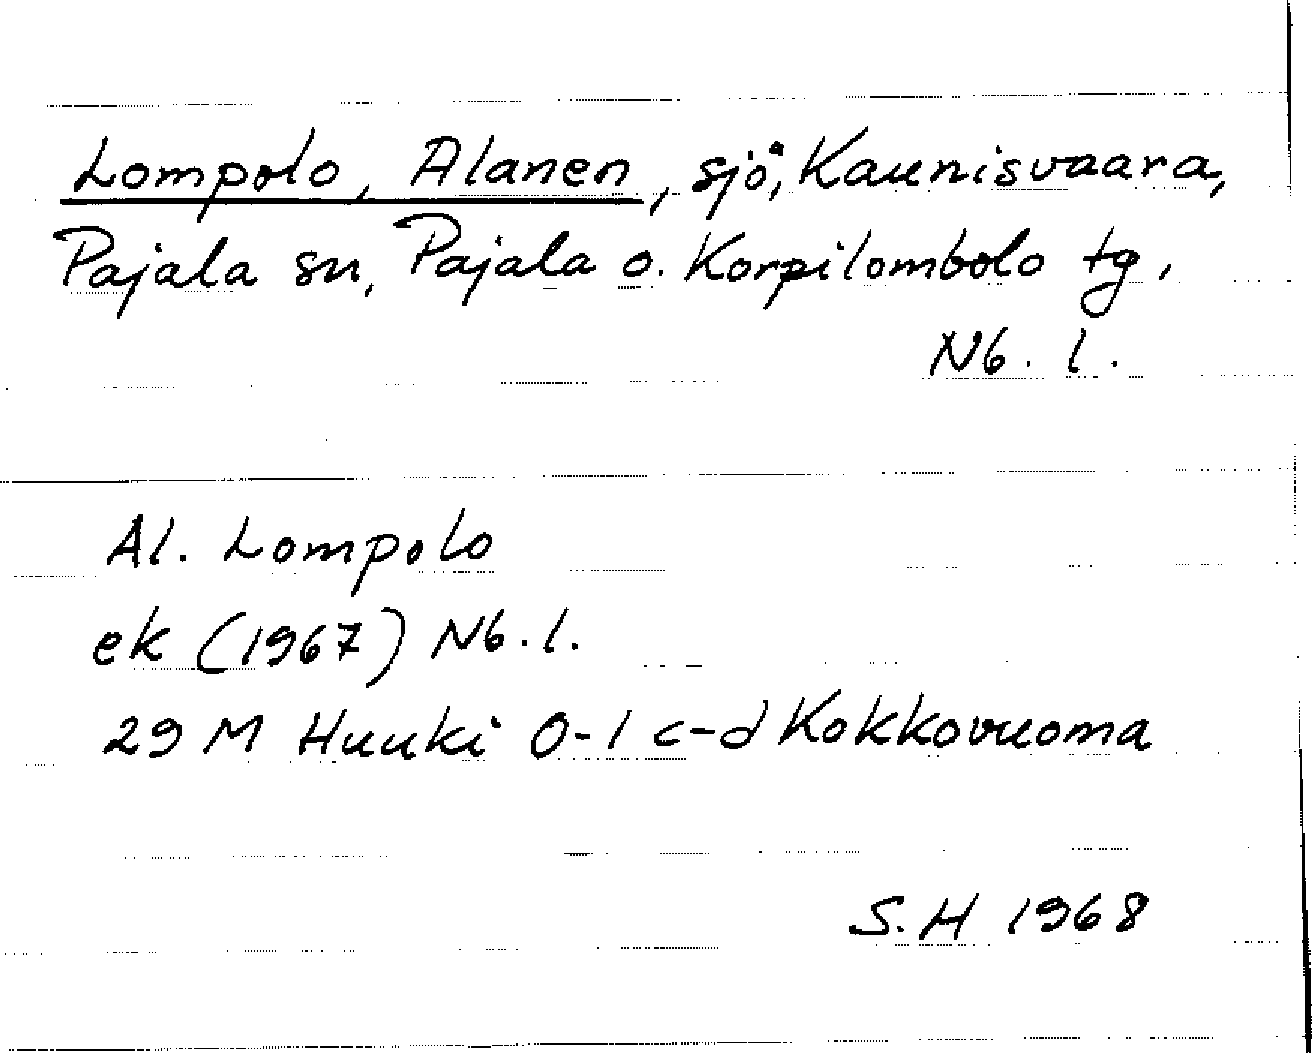 Lompolo, Alanen, sjö, Kaunisvaara,
Pajala sn, Pajala o. Korpilombolo tg,
Nb. l.
Al. Lompolo
ek (1967) Nb. l.
29 M Huuki 0-1 c-d Kokkovuoma
S. H 1968